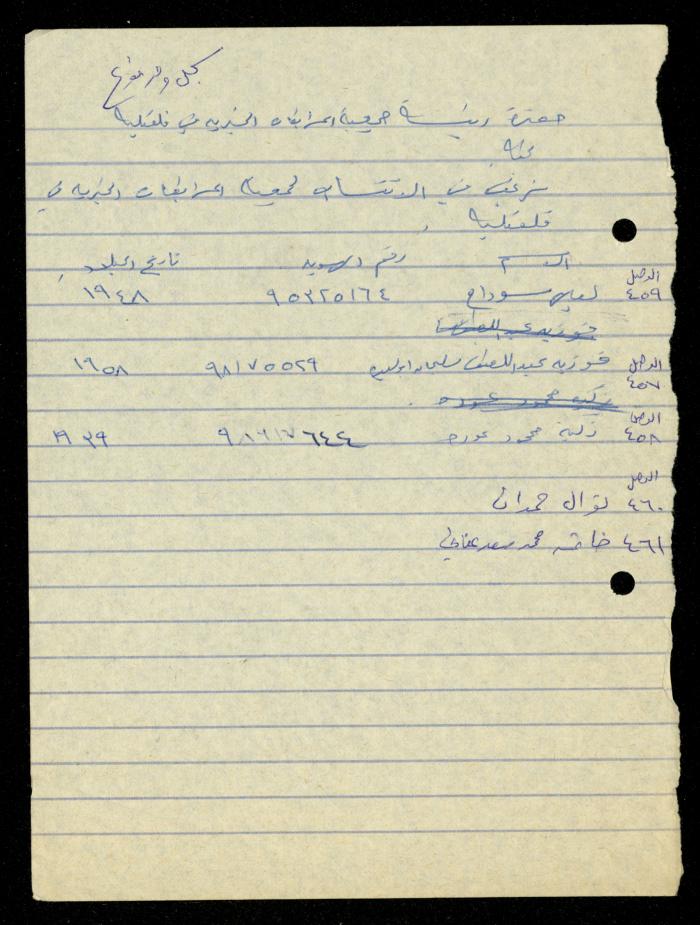 حضرة رئيسة جمعية المرابطات الخيرية في قلقيلية
نرغب في الانتساب لجمعية المرابطات الخيرية في
قلقيلية
الاسم رقم الهوية تاريخ الميلاد
الوصل
٤٥٩ ٩٥٣٢٥١٦٤ ١٩٤٨
فوزيه عبد اللطيف
الوصل
٤٥٧ فوزيه عبد اللطيف سليمان ٩٨١٧٥٥٢٩ ١٩٥٨
زكيه محمود عوده
الوصل
٤٥٨ زكية محمود عوده ٩٨٩١٧٦٤٤ ١٩٣٩
الوصل
٤٦٠ نوال حمدان
٤٦١ محمد سعد عناني